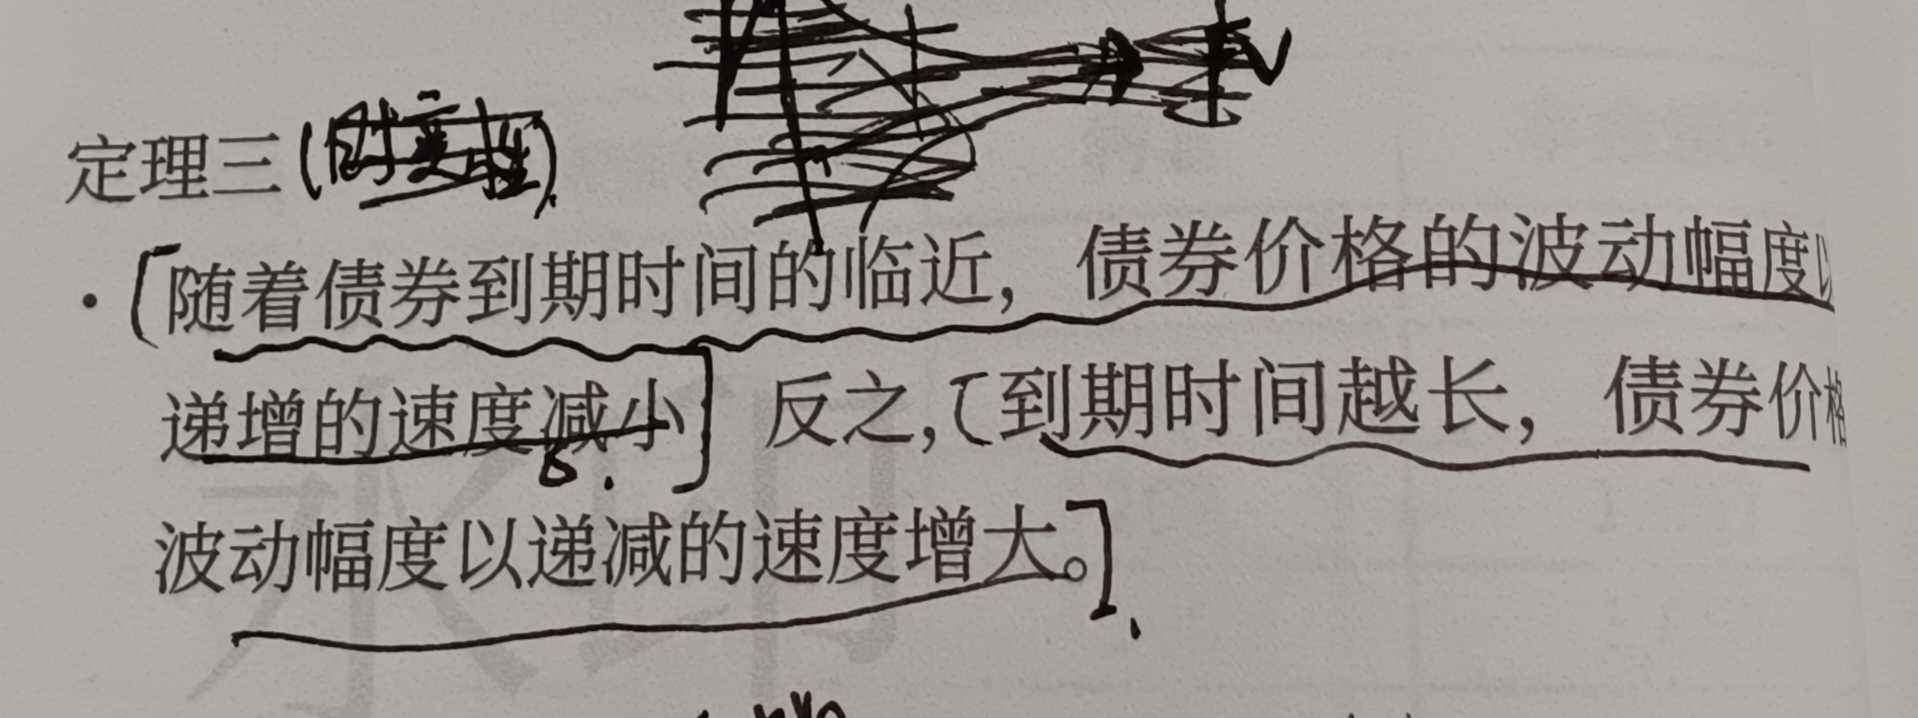 定理三(时变性)
·[随着债券到期时间的临近，债券价格的波动幅度以
递增的速度减小]反之,[到期时间越长，债券价格
波动幅度以递减的速度增大。]